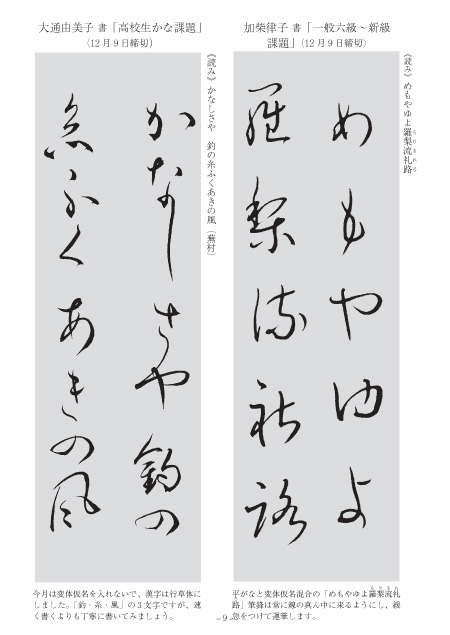 加柴律子 書「一般六級～新級
課題」（12月9日締切）
《読み》めもやゆよ羅梨流礼路
らりるれろ
めもやゆよ
羅梨流礼路
平がなと変体仮名混合の「めもやゆよ羅梨流礼
らりるれ
路」筆鋒は常に線の真ん中に来るようにし、緩
急をつけて運筆します。
大通由美子 書「高校生かな課題」
（12月9日締切）
《読み》かなしさや 釣の糸ふくあきの風（蕪村）
かなしさや釣の
糸ふくあきの風
今月は変体仮名を入れないで、漢字は行草体に
しました。「釣・糸・風」の3文字ですが、速
く書くよりも丁寧に書いてみましょう。
- 9 -